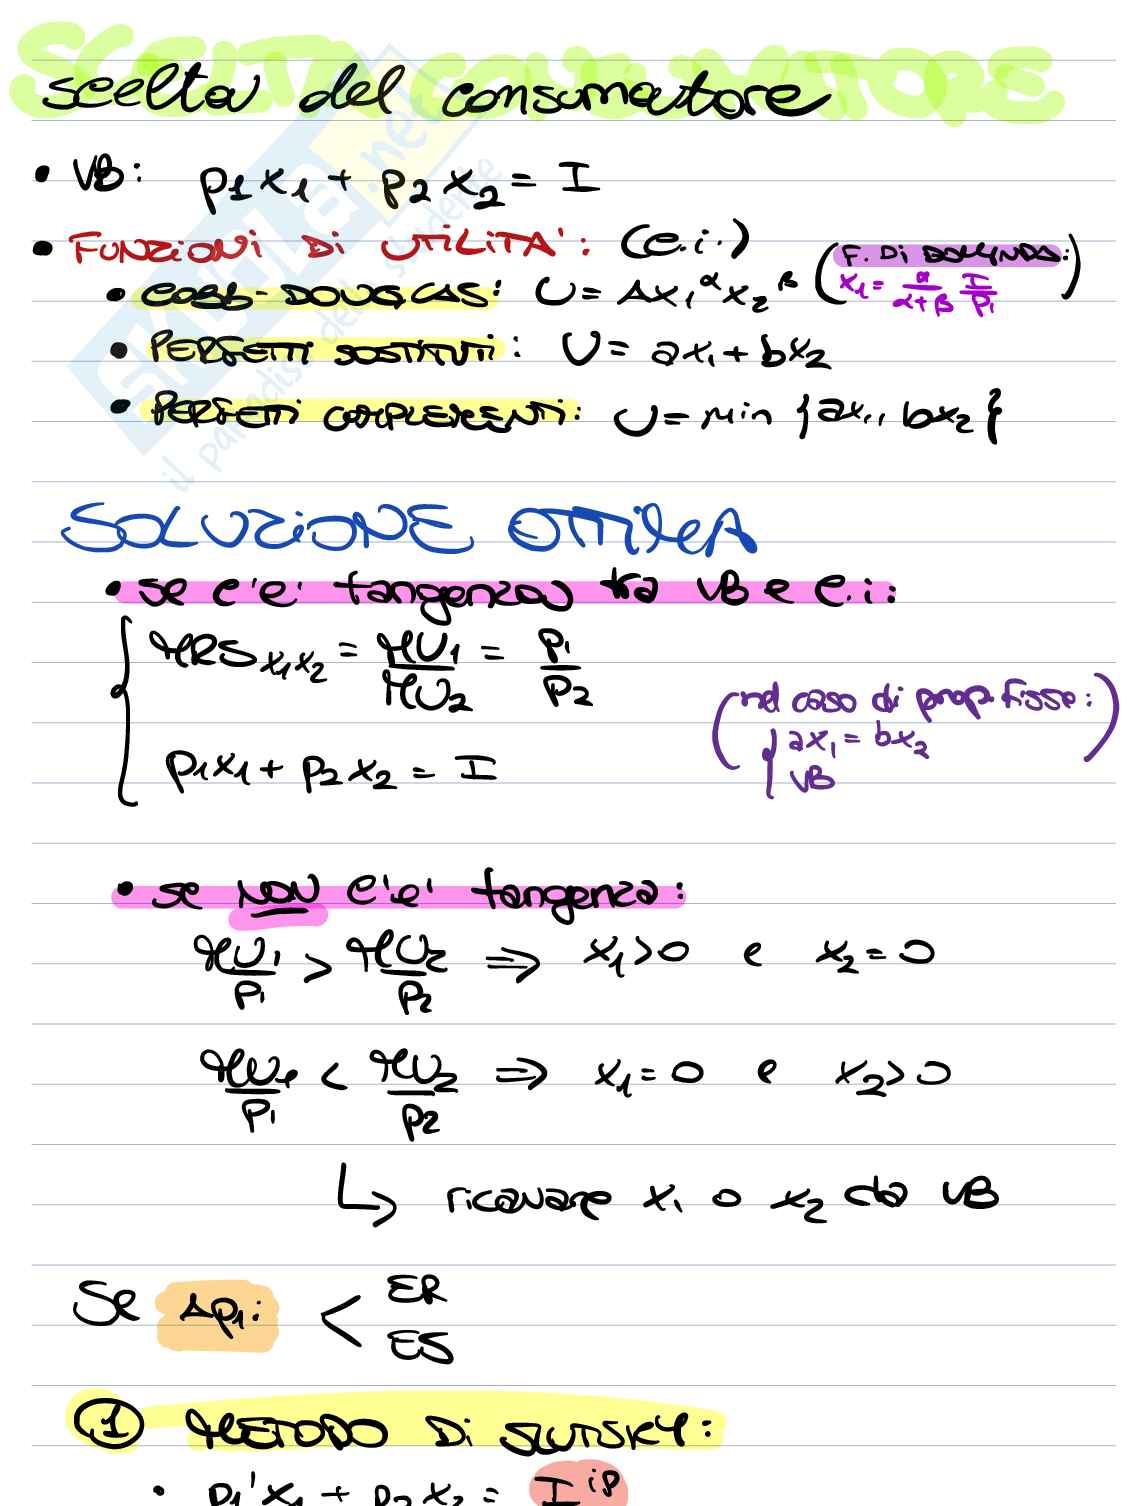 SCELTA CONSUMATORE
scelta del consumatore
• VB: p1x1 + p2x2 = I
• FUNZIONI DI UTILITA': (c.i.)
• COBB-DOUGLAS: U = Ax1^α x2^β (F. DI DOMANDA: x1 = α/(α+β) I/p1)
• PERFETTI SOSTITUTI: U = ax1 + bx2
• PERFETTI COMPLEMENTI: U = min {ax1, bx2}
SOLUZIONE OTTIMA
• se c'e' tangenza tra VB e c.i:
MRS x1x2 = MU1/MU2 = p1/p2
p1x1 + p2x2 = I
(nel caso di prop. fisse:
{ ax1 = bx2
VB)
• se NON c'e' tangenza:
MU1/p1 > MU2/p2 ⇒ x1>0 e x2=0
MU1/p1 < MU2/p2 ⇒ x1=0 e x2>0
↳ ricavare x1 o x2 da VB
Se Δp1: < ER
ES
① METODO DI SLUTSKY:
• p1'x1 + p2x2 = I^ip
SKUOLA.net
il paradiso dello studente